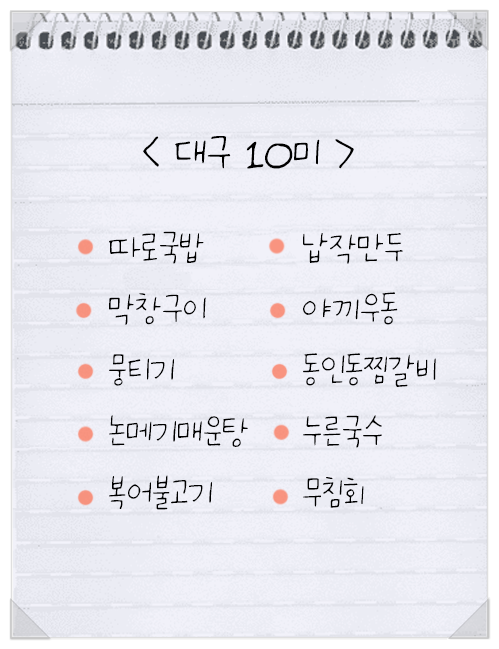 < 대구 10미 >
따로국밥 납작만두
막창구이 야끼우동
뭉티기 동인동찜갈비
논메기매운탕 누른국수
복어불고기 무침회